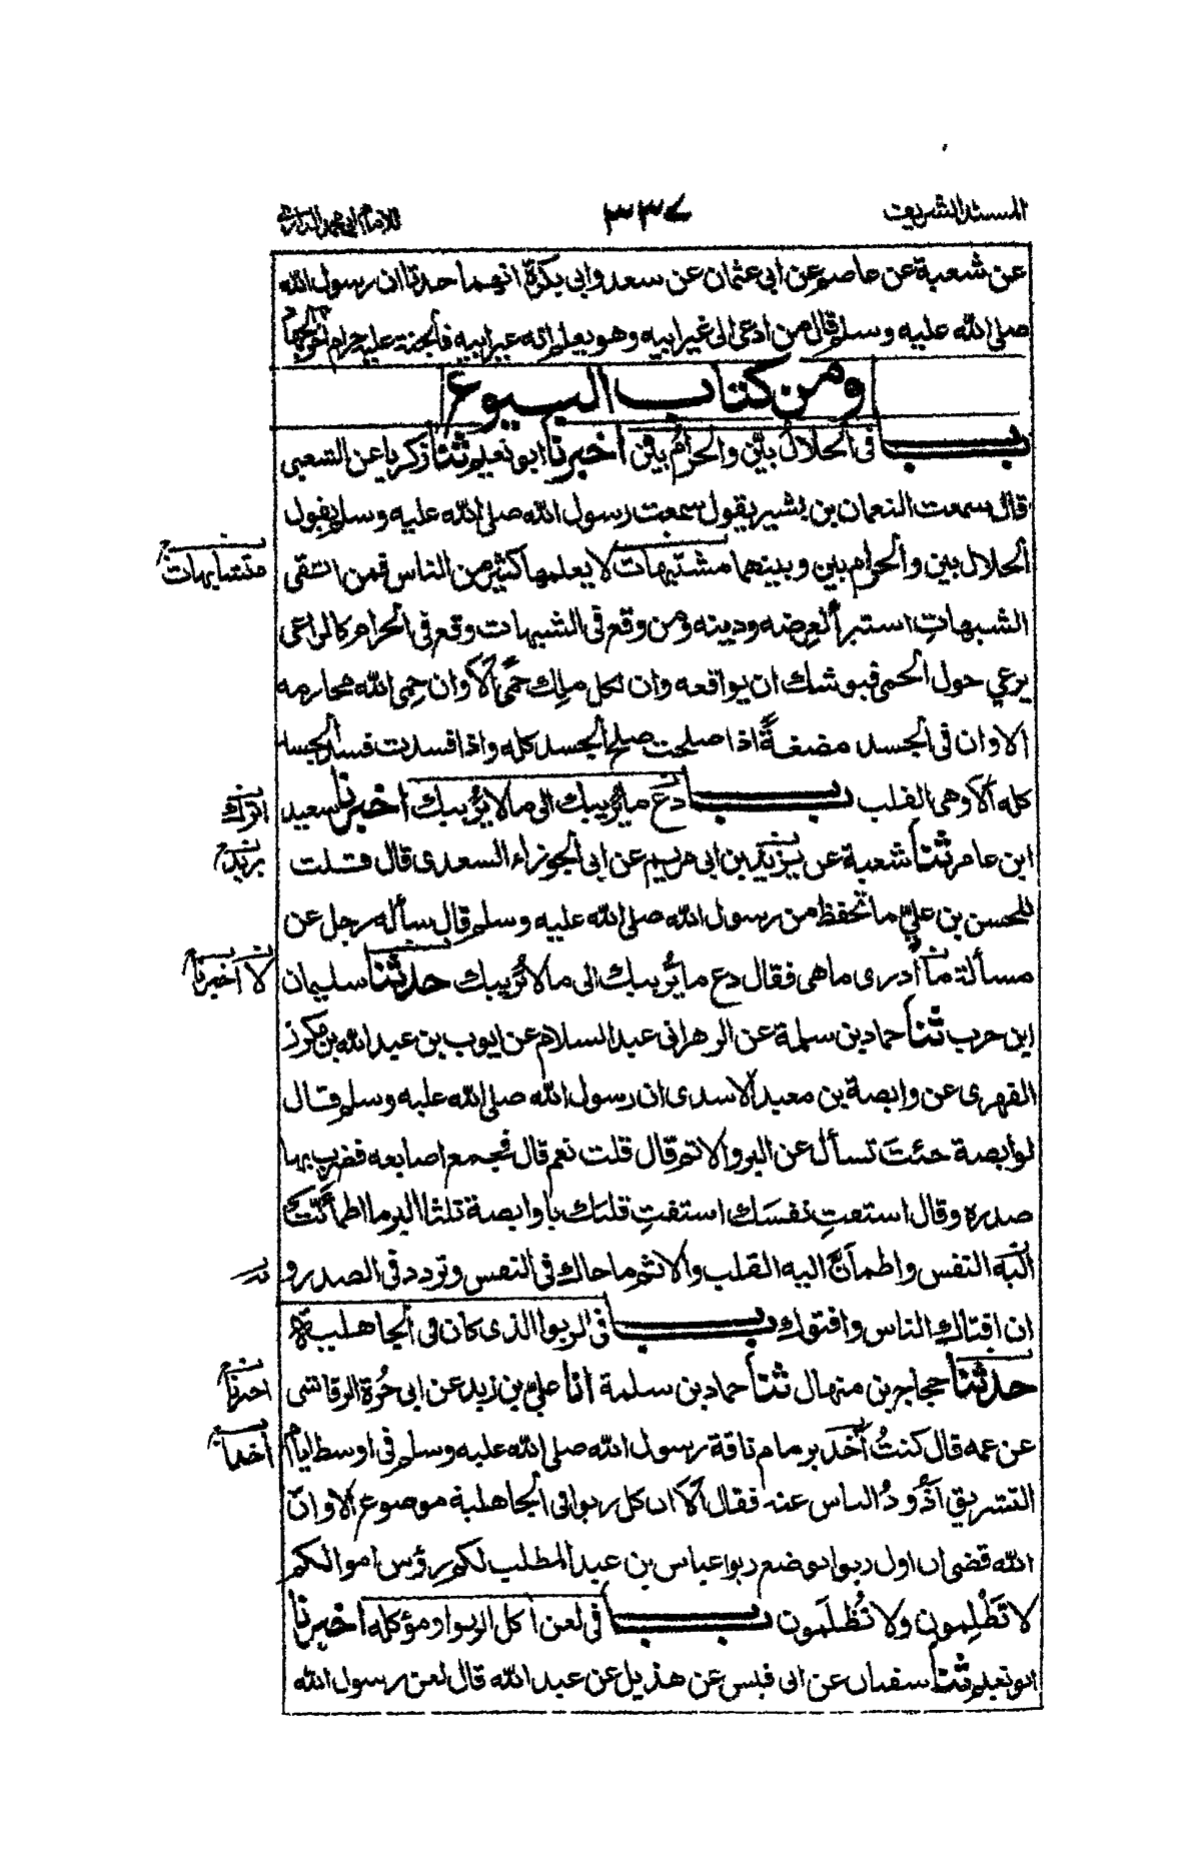 المسند الشريف ٣٣٧ للامام ابي محمد الدارمي
عن شعبة عن عاصم عن ابى عثمان عن سعد وابى بكرة انهما حدثا ان رسول الله
صلى الله عليه وسلم قال من ادعى الى غير ابيه وهو يعلم انه غير ابيه فالجنة عليه حرام
ومن كتاب البيوع
باب فى الحلال بيّن والحرامُ بيّن اخبرنا ابو نعيم ثنا زكريا عن الشعبى
قال سمعت النعمان بن بشير يقول سمعت رسول الله صلى الله عليه وسلم يقول
الحلال بين والحرام بين وبينهما مشتبهات لا يعلمها كثير من الناس فمن اتقى
متشابهات
الشبهاتِ استبرأ لعِرضه ودينه ومن وقع فى الشبهات وقع فى الحرام كالراعى
يرعي حول الحمى فيوشك ان يواقعه وان لكل ملِك حمًى ألا وان حِمى الله محارمه
الا وان فى الجسد مضغةً اذا صلحت صلح الجسد كله واذا فسدت فسد الجسد
كله ألا وهى القلب باب دَع ما يُريبك الى ما لا يُريبك اخبرنا سعيد
اترك
ابن عامر ثنا شعبة عن يزيد بن ابى مريم عن ابى الجوزاء السعدى قال قلت
بريد
للحسن بن عليّ ما تحفظ من رسول الله صلى الله عليه وسلم قال سأله رجل عن
مسألة ما أدرى ما هى فقال دع ما يُريبك الى ما لا يُريبك حدثنا سليمان
لا اخبرنا
ابن حرب ثنا حماد بن سلمة عن الزهرانى عبد السلام عن ايوب بن عبد الله بن مكرز
الفهرى عن وابصة بن معبد الاسدى ان رسول الله صلى الله عليه وسلم قال
لوابصة جئتَ تسأل عن البر والاثم قال قلت نعم قال فجمع اصابعه فضرب بها
صدره وقال استفتِ نفسَك استفتِ قلبَك يا وابصة ثلثا البر ما اطمأنّتْ
اليه النفس واطمأنّ اليه القلب والاثم ما حاك فى النفس وتردد فى الصدر و
ان افتاك الناس وافتوك باب فى الربوا الذى كان فى الجاهلية
حدثنا حجاج بن منهال ثنا حماد بن سلمة انا علي بن زيد عن ابى حُرة الرقاشى
اخبرنا
عن عمه قال كنتُ آخذ بزمام ناقة رسول الله صلى الله عليه وسلم فى اوسط ايام
آخذا
التشريق أذُودُ الناس عنه فقال ألا ان كل ربوا فى الجاهلية موضوع ألا وانّ
الله قضى ان اول ربوا يوضع ربوا عباس بن عبد المطلب لكم رؤس اموالكم
لا تَظْلِمون ولا تُظلَمون باب فى لعن آكل الربوا ومؤكله اخبرنا
ابو نعيم ثنا سفيان عن ابى قيس عن هذيل عن عبد الله قال لعن رسول الله